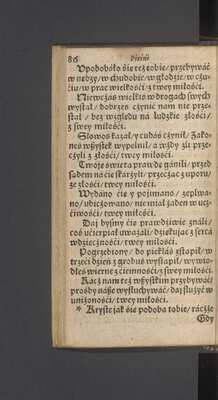 86 Pieśni
Upodobáło się tež tobie/ przebywáć
w nędzy/ w chudobie/ w głodzie/ w cżu-
ciu/ w prac wielkości/ z twey miłości.
Niewcżás wielki w drogách swych
wystał/ dobrzes cżynić nam nie prze-
stał/ bez względu ná ludzkie złości/
z swey miłości.
Słowoś kazał/ y cudás cżynił/ Zako-
neś wszystek wypełnił/ á wżdy źli prze-
cżyli z złości/ twey miłości.
Twoie świetá prawdę gánili/ przed
sądem ná cię skárżyli/ przecżąc z uporu/
ze złości/ twey miłości.
Wydano cię y poimano/ zeplwa-
no/ ubicżowano/ nie miał żaden w ucz-
ciwości/ twey miłości.
Day byśmy cię prawdziwie ználi/
coś ucierpiał uważáli/ dziękuiąc z sercá
wdzięcżności/ twey miłości.
Pogrzebiony/ do piekłáś zstąpił/ w
trzeci dzień z grobuś wystąpił/ wywio-
dłeś wierne z ciemności/ z swey miłości.
Racż nam też wszystkim przebywáć
prośby násze wysłucháć/ day służyć w
uniżoności/ twey miłości.
* Kryste iák się podoba tobie/ racżże
Gdy